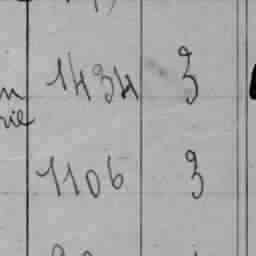 1434 3
rie
1106 3